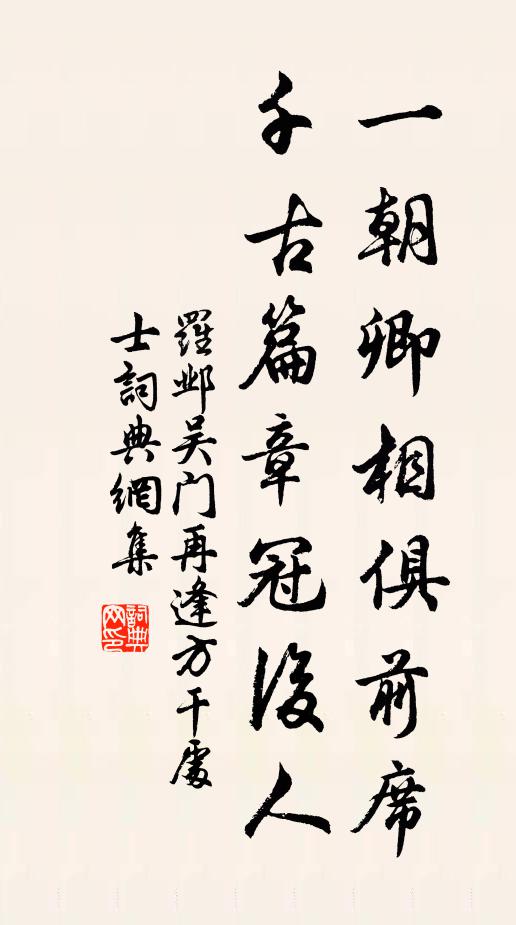 一朝卿相俱前席
千古篇章冠後人
羅邺吴门再逢方干處
士詞典網集
詞典
网印